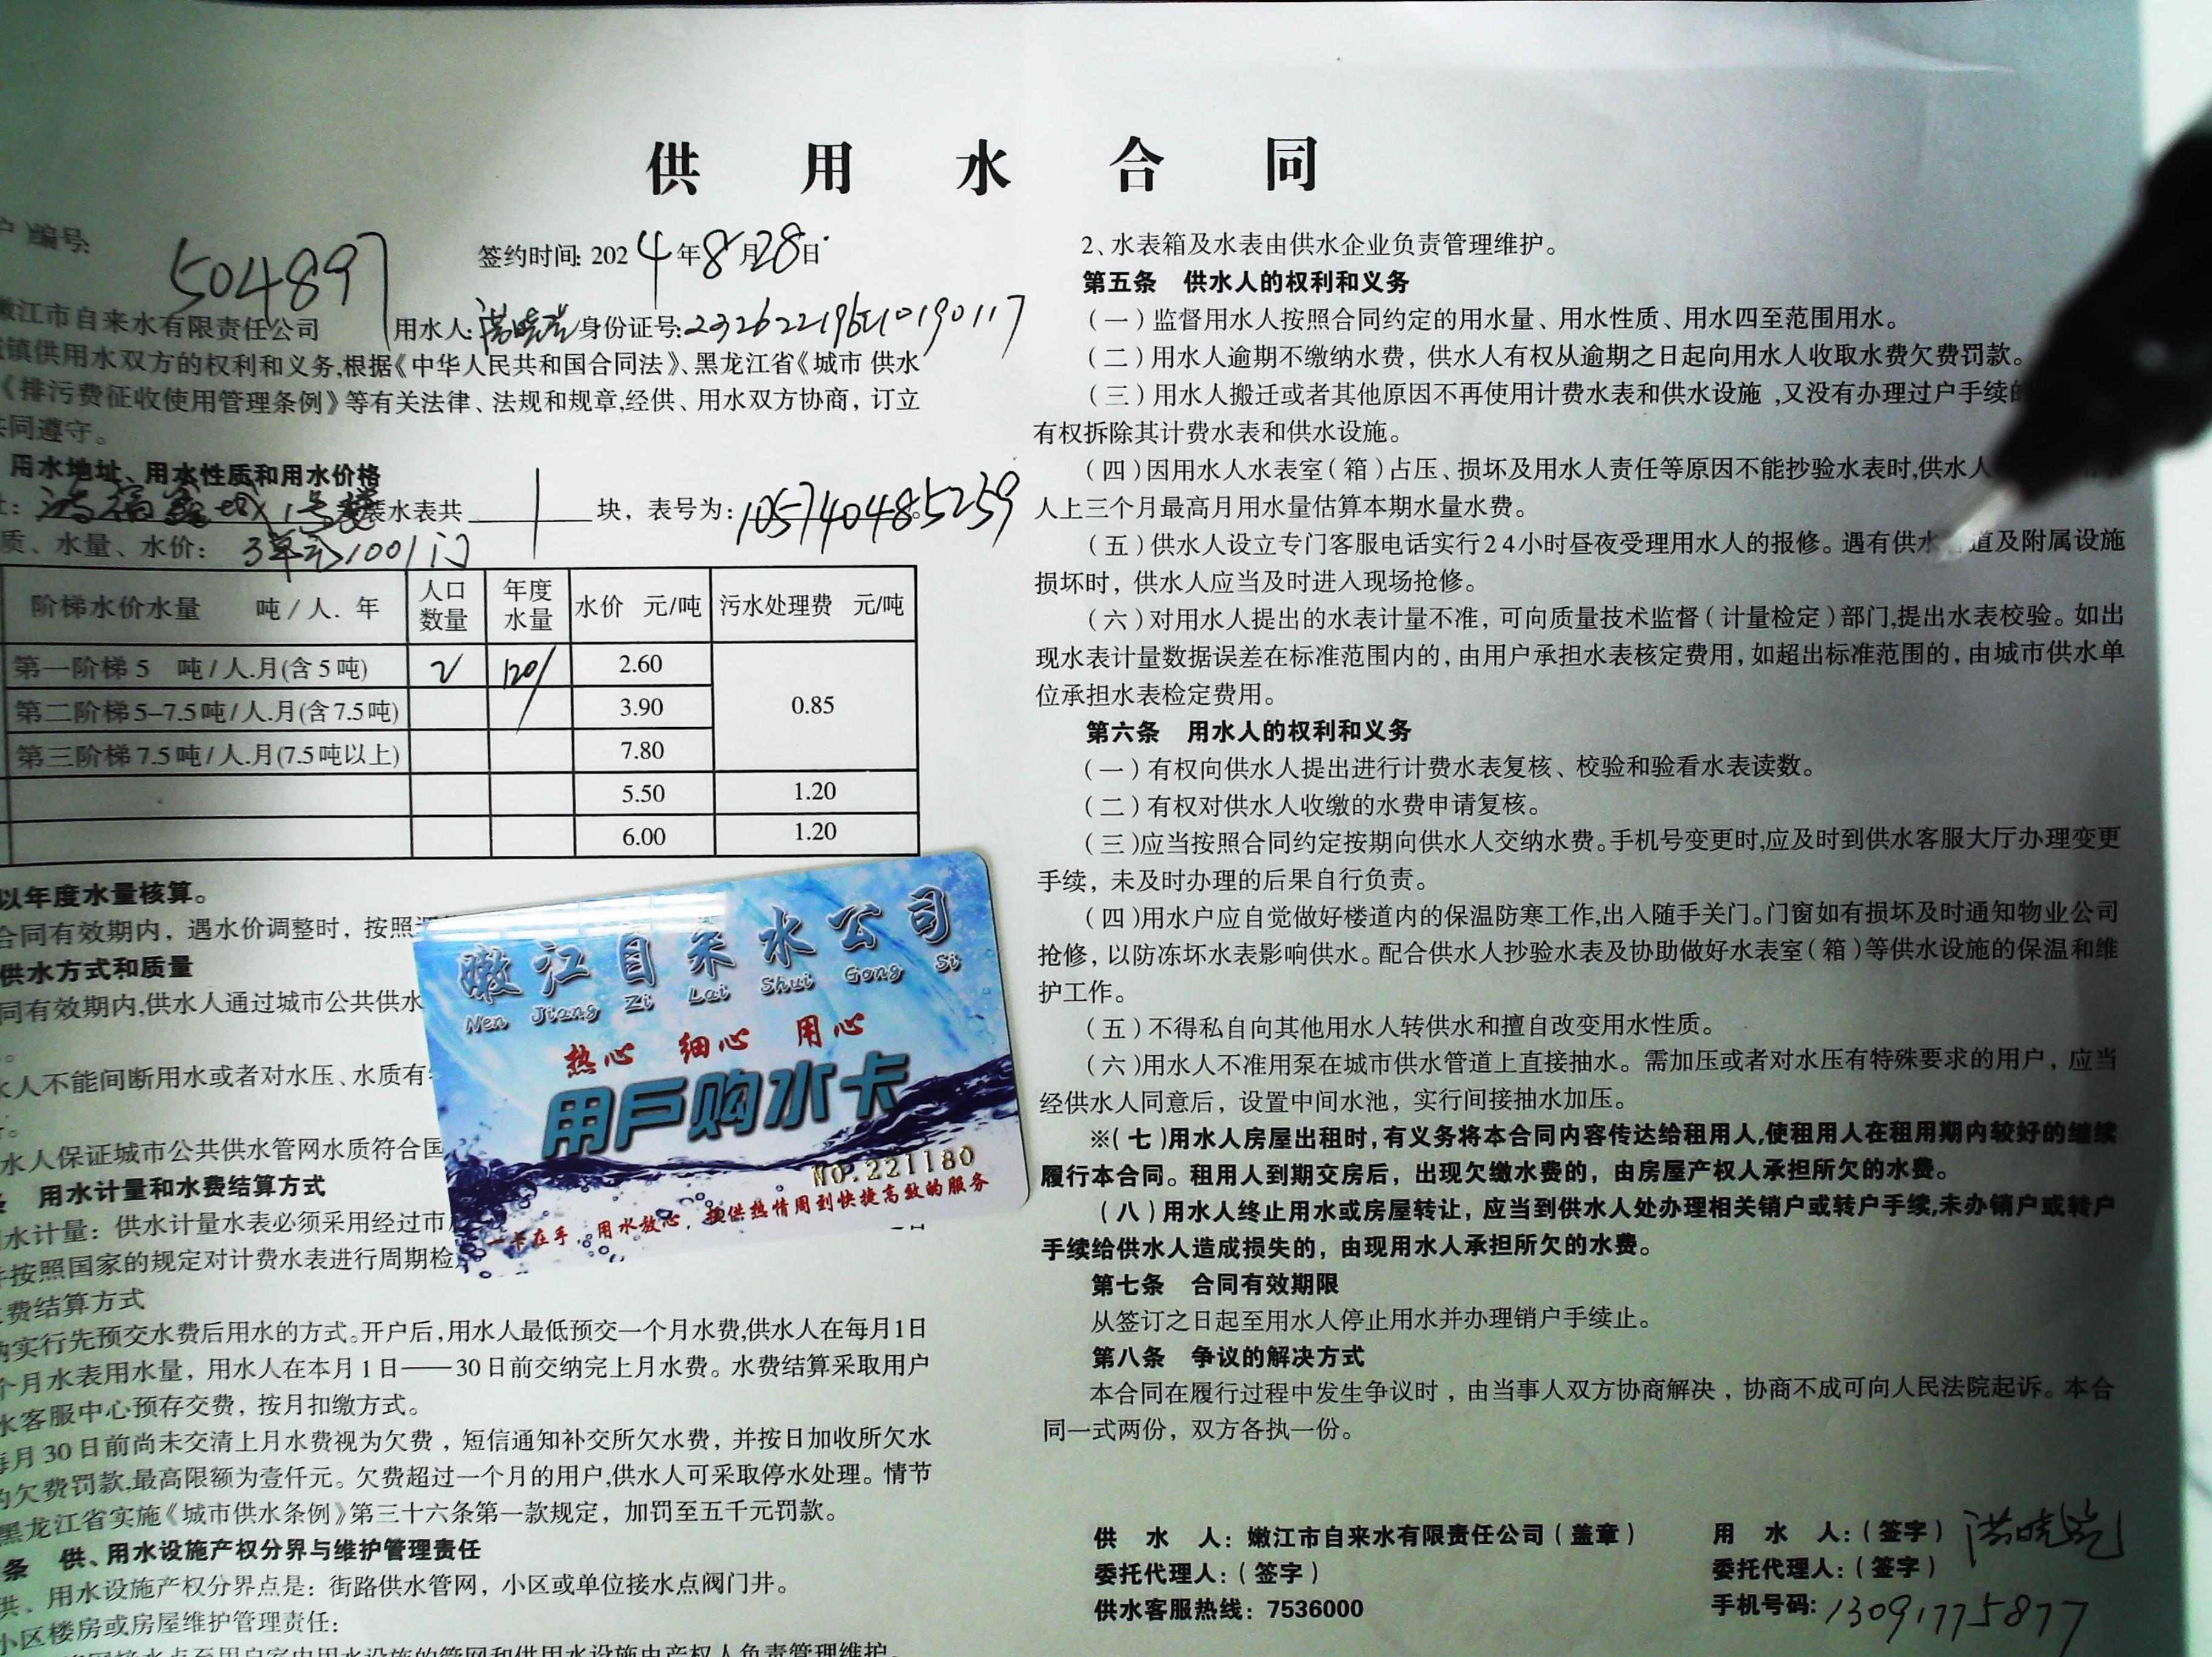 供用水合同
户）编号：
504897
签约时间：2024年8月28日
嫩江市自来水有限责任公司
用水人：洪晓 身份证号：
城镇供用水双方的权利和义务,根据《中华人民共和国合同法》、黑龙江省《城市 供水
《排污费征收使用管理条例》等有关法律、法规和规章,经供、用水双方协商，订立
共同遵守。
用水地址、用水性质和用水价格
1号楼 装水表共 1 块，表号为：105740485259
质、水量、水价： 3单元1001门
阶梯水价水量 吨/人.年 人口数量 年度水量 水价 元/吨 污水处理费 元/吨
第一阶梯5 吨/人.月(含5吨) 2 120 2.60 0.85
第二阶梯5-7.5吨/人.月(含7.5吨) 3.90
第三阶梯7.5吨/人.月(7.5吨以上) 7.80
5.50 1.20
6.00 1.20
以年度水量核算。
合同有效期内，遇水价调整时，按照
供水方式和质量
同有效期内,供水人通过城市公共供水
水人不能间断用水或者对水压、水质有
水人保证城市公共供水管网水质符合国
用水计量和水费结算方式
水计量：供水计量水表必须采用经过市
并按照国家的规定对计费水表进行周期检
费结算方式
实行先预交水费后用水的方式。开户后,用水人最低预交一个月水费,供水人在每月1日
个月水表用水量，用水人在本月1日——30日前交纳完上月水费。水费结算采取用户
水客服中心预存交费，按月扣缴方式。
每月30日前尚未交清上月水费视为欠费，短信通知补交所欠水费，并按日加收所欠水
的欠费罚款,最高限额为壹仟元。欠费超过一个月的用户,供水人可采取停水处理。情节
黑龙江省实施《城市供水条例》第三十六条第一款规定，加罚至五千元罚款。
条 供、用水设施产权分界与维护管理责任
供、用水设施产权分界点是：街路供水管网，小区或单位接水点阀门井。
小区楼房或房屋维护管理责任：
接水点至用户室内用水设施的管网和供用水设施由产权人负责管理维护。
嫩江自来水公司
Nen Jiang Zi Lai Shui Gong Si
热心 细心 用心
用户购水卡
NO.221180
一卡在手，用水放心，提供热情周到快捷高效的服务
2、水表箱及水表由供水企业负责管理维护。
第五条 供水人的权利和义务
（一）监督用水人按照合同约定的用水量、用水性质、用水四至范围用水。
（二）用水人逾期不缴纳水费，供水人有权从逾期之日起向用水人收取水费欠费罚款。
（三）用水人搬迁或者其他原因不再使用计费水表和供水设施，又没有办理过户手续的
有权拆除其计费水表和供水设施。
（四）因用水人水表室（箱）占压、损坏及用水人责任等原因不能抄验水表时,供水人
人上三个月最高月用水量估算本期水量水费。
（五）供水人设立专门客服电话实行24小时昼夜受理用水人的报修。遇有供水 道及附属设施
损坏时，供水人应当及时进入现场抢修。
（六）对用水人提出的水表计量不准，可向质量技术监督（计量检定）部门,提出水表校验。如出
现水表计量数据误差在标准范围内的，由用户承担水表核定费用，如超出标准范围的，由城市供水单
位承担水表检定费用。
第六条 用水人的权利和义务
（一）有权向供水人提出进行计费水表复核、校验和验看水表读数。
（二）有权对供水人收缴的水费申请复核。
（三）应当按照合同约定按期向供水人交纳水费。手机号变更时,应及时到供水客服大厅办理变更
手续，未及时办理的后果自行负责。
（四）用水户应自觉做好楼道内的保温防寒工作,出入随手关门。门窗如有损坏及时通知物业公司
抢修，以防冻坏水表影响供水。配合供水人抄验水表及协助做好水表室（箱）等供水设施的保温和维
护工作。
（五）不得私自向其他用水人转供水和擅自改变用水性质。
（六）用水人不准用泵在城市供水管道上直接抽水。需加压或者对水压有特殊要求的用户，应当
经供水人同意后，设置中间水池，实行间接抽水加压。
※（七）用水人房屋出租时，有义务将本合同内容传达给租用人,使租用人在租用期内较好的继续
履行本合同。租用人到期交房后，出现欠缴水费的，由房屋产权人承担所欠的水费。
（八）用水人终止用水或房屋转让，应当到供水人处办理相关销户或转户手续,未办销户或转户
手续给供水人造成损失的，由现用水人承担所欠的水费。
第七条 合同有效期限
从签订之日起至用水人停止用水并办理销户手续止。
第八条 争议的解决方式
本合同在履行过程中发生争议时，由当事人双方协商解决，协商不成可向人民法院起诉。本合
同一式两份，双方各执一份。
供 水 人：嫩江市自来水有限责任公司（盖章）
委托代理人：（签字）
供水客服热线：7536000
用 水 人：（签字）洪晓
委托代理人：（签字）
手机号码：13091775877